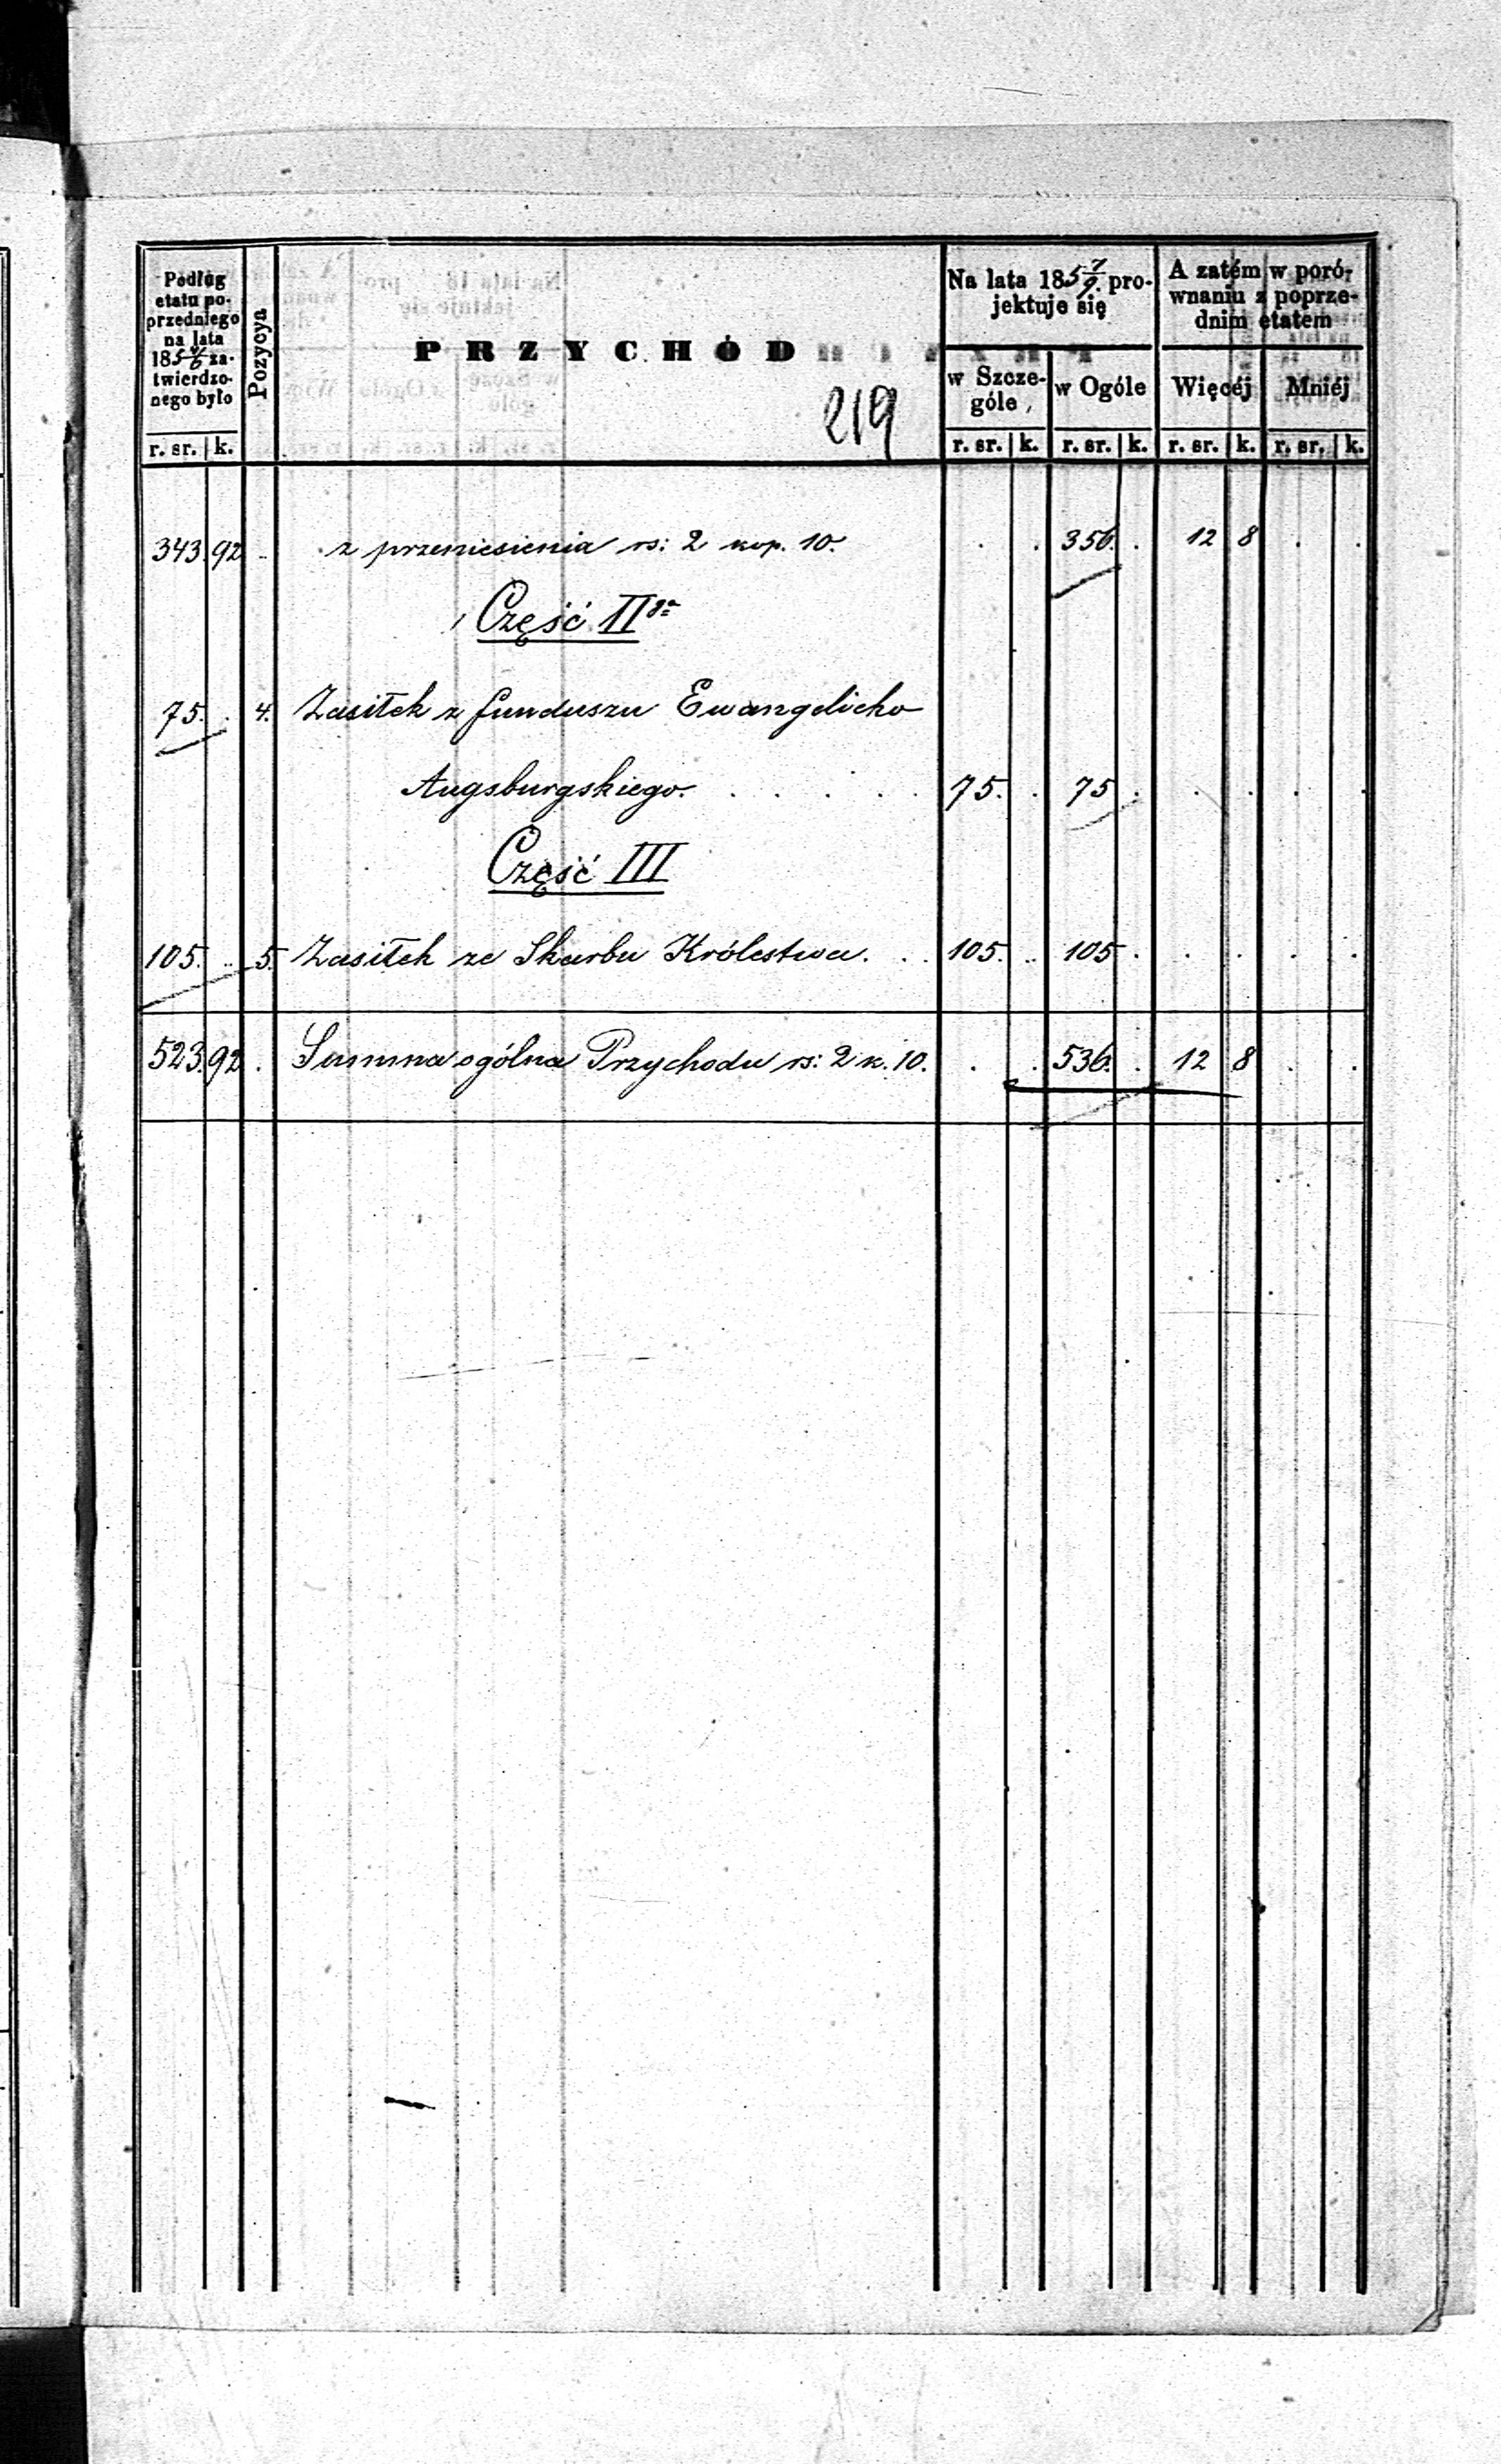 Podług etatu poprzedniego na lata 185 4/6 zatwierdzonego było
Pozycya
PRZYCHÓD
219
Na lata 185 7/9. projektuje się
A zatém w porównaniu z poprzednim etatem
w Szczególe
w Ogóle
Więcéj
Mniéj
r. sr. k. r. sr. k. r. sr. k. r. sr. k. r. sr. k.
343. 92 z przeniesienia rs: 2 kop. 10. . . 356. . 12 8 . .
Część II ga
75. . 4. Zasiłek z funduszu Ewangelicko
Augsburgskiego. . . . . . 75. . 75 . . . . .
Część III
105. .. 5. Zasiłek ze Skarbu Królestwa. . . 105. .. 105 . . . . .
523. 92 . Summa ogólna Przychodu rs: 2 k. 10. . . 536. . 12 8 . .